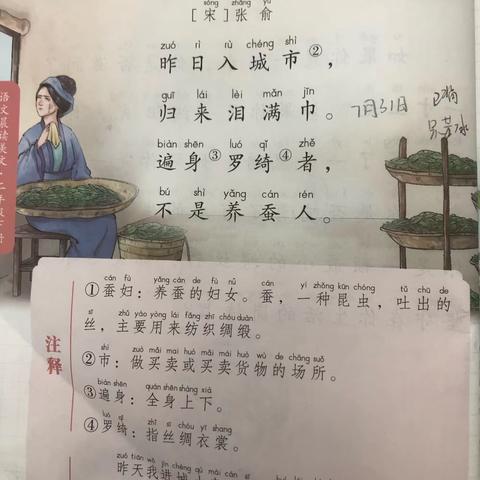 sòng zhāng yú
[宋]张俞
zuó rì rù chéng shì
昨日入城市②，
guī lái lèi mǎn jīn
归来泪满巾。
7月31日
biàn shēn luó qǐ zhě
遍身③罗绮④者，
bú shì yǎng cán rén
不是养蚕人。
语文晨读美文·二年级下册
注释
cán fù yǎng cán de fù nǚ cán yì zhǒng kūn chóng tǔ chū de
①蚕妇：养蚕的妇女。蚕，一种昆虫，吐出的
sī zhǔ yào yòng lái fǎng zhī chóu duàn
丝，主要用来纺织绸缎。
shì zuò mǎi mai huò mǎi mài huò wù de chǎng suǒ
②市：做买卖或买卖货物的场所。
biàn shēn quán shēn shàng xià
③遍身：全身上下。
luó qǐ zhǐ sī chóu yī shang
④罗绮：指丝绸衣裳。
zuó tiān wǒ jìn chéng qù mài cán sī
昨天我进城